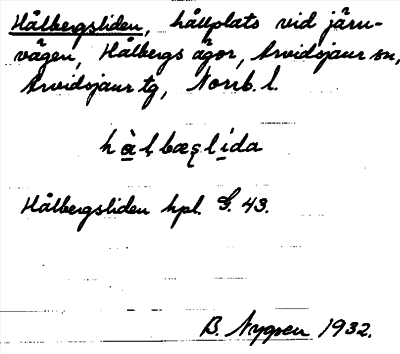 Hålbergsliden, hållplats vid järn-
vägen, Hålbergs ägor, Arvidsjaur sn,
Arvidsjaur tg, Norrb. l.
hàlbæʂlída
Hålbergsliden hpl. G. 43.
B. Nygren 1932.